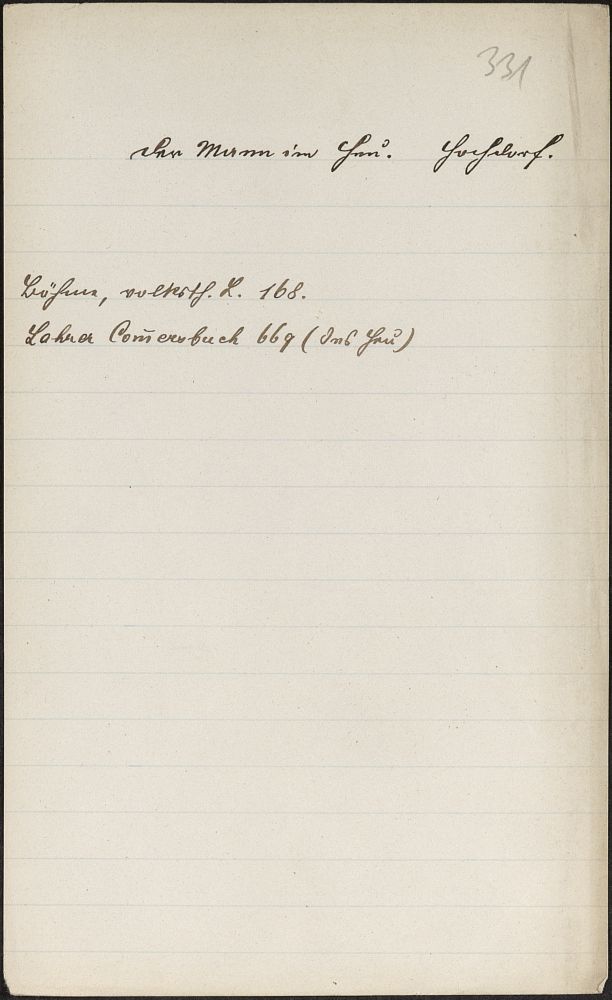 331
Der Mann im Heu. Hochdorf.
Böhme, volksth. L. 168.
Lahrer Com̄ersbuch 669 (Das Heu)